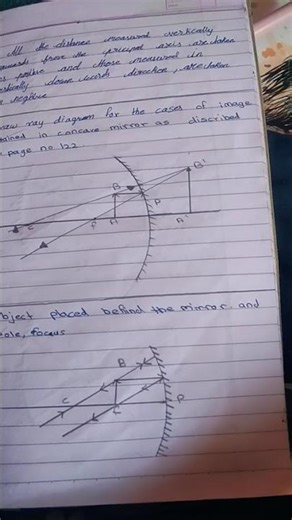 All the distance measured vertically
upwards from the principal axis are taken
as positive and those measured in
vertically down wards direction, are taken
negative
draw ray diagram for the cases of image
obtained in concave mirror as discribed
page no 122
B'
B
P
C
F
A
A'
object placed behind the mirror and
pole, focus
B
C
P
C